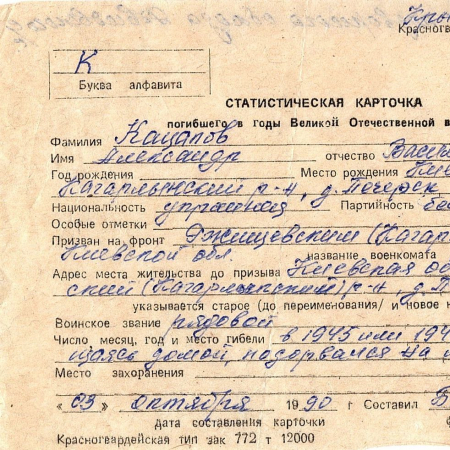 Красногва
К
Буква алфавита
СТАТИСТИЧЕСКАЯ КАРТОЧКА
погибшего в годы Великой Отечественной в
Фамилия Кацапов
Имя Александр отчество Васи
Год рождения Место рождения Кие
Кагарлыкский р-н, д. Печерск
Национальность украинец Партийность бес
Особые отметки
Призван на фронт Ржищевским (Кагар
Киевской обл. название военкомата
Адрес места жительства до призыва Киевская об
ский (Кагарлыкский) р-н, д. П
указывается старое (до переименования/ и новое н
Воинское звание рядовой
Число, месяц, год и место гибели в 1945 или 194
щаясь домой, подорвался на м
Место захоронения
„03 октября 1990 г Составил В
Дата составления карточки
Красногвардейская тип зак 772 т 12000